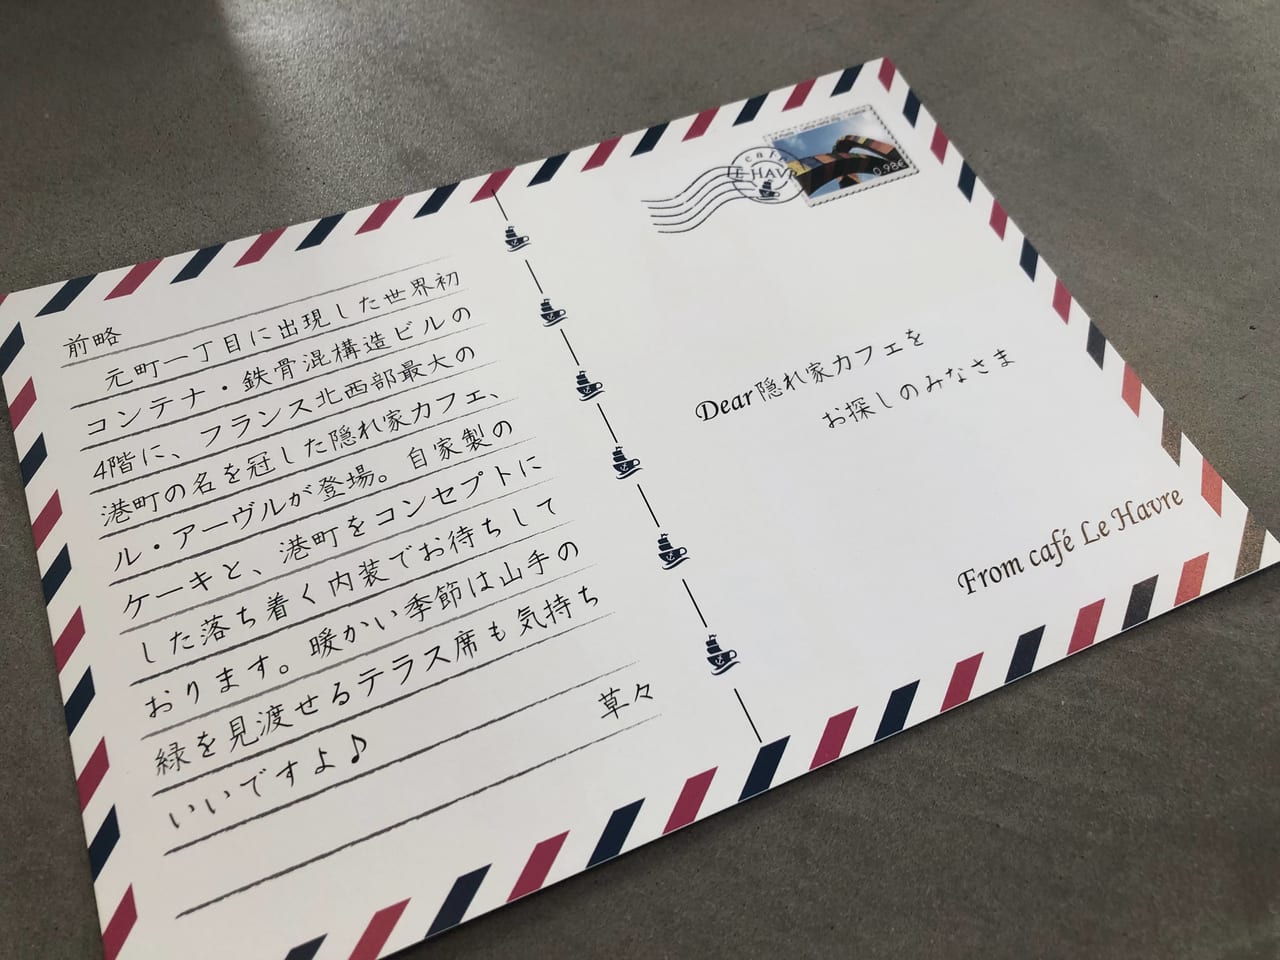 前略
元町一丁目に出現した世界初
コンテナ・鉄骨混構造ビルの
4階に、フランス北西部最大の
港町の名を冠した隠れ家カフェ、
ル・アーヴルが登場。自家製の
ケーキと、港町をコンセプトに
した落ち着く内装でお待ちして
おります。暖かい季節は山手の
緑を見渡せるテラス席も気持ち
いいですよ♪
草々
café
LE HAVRE
0.98€
Dear隠れ家カフェを
お探しのみなさま
From café Le Havre